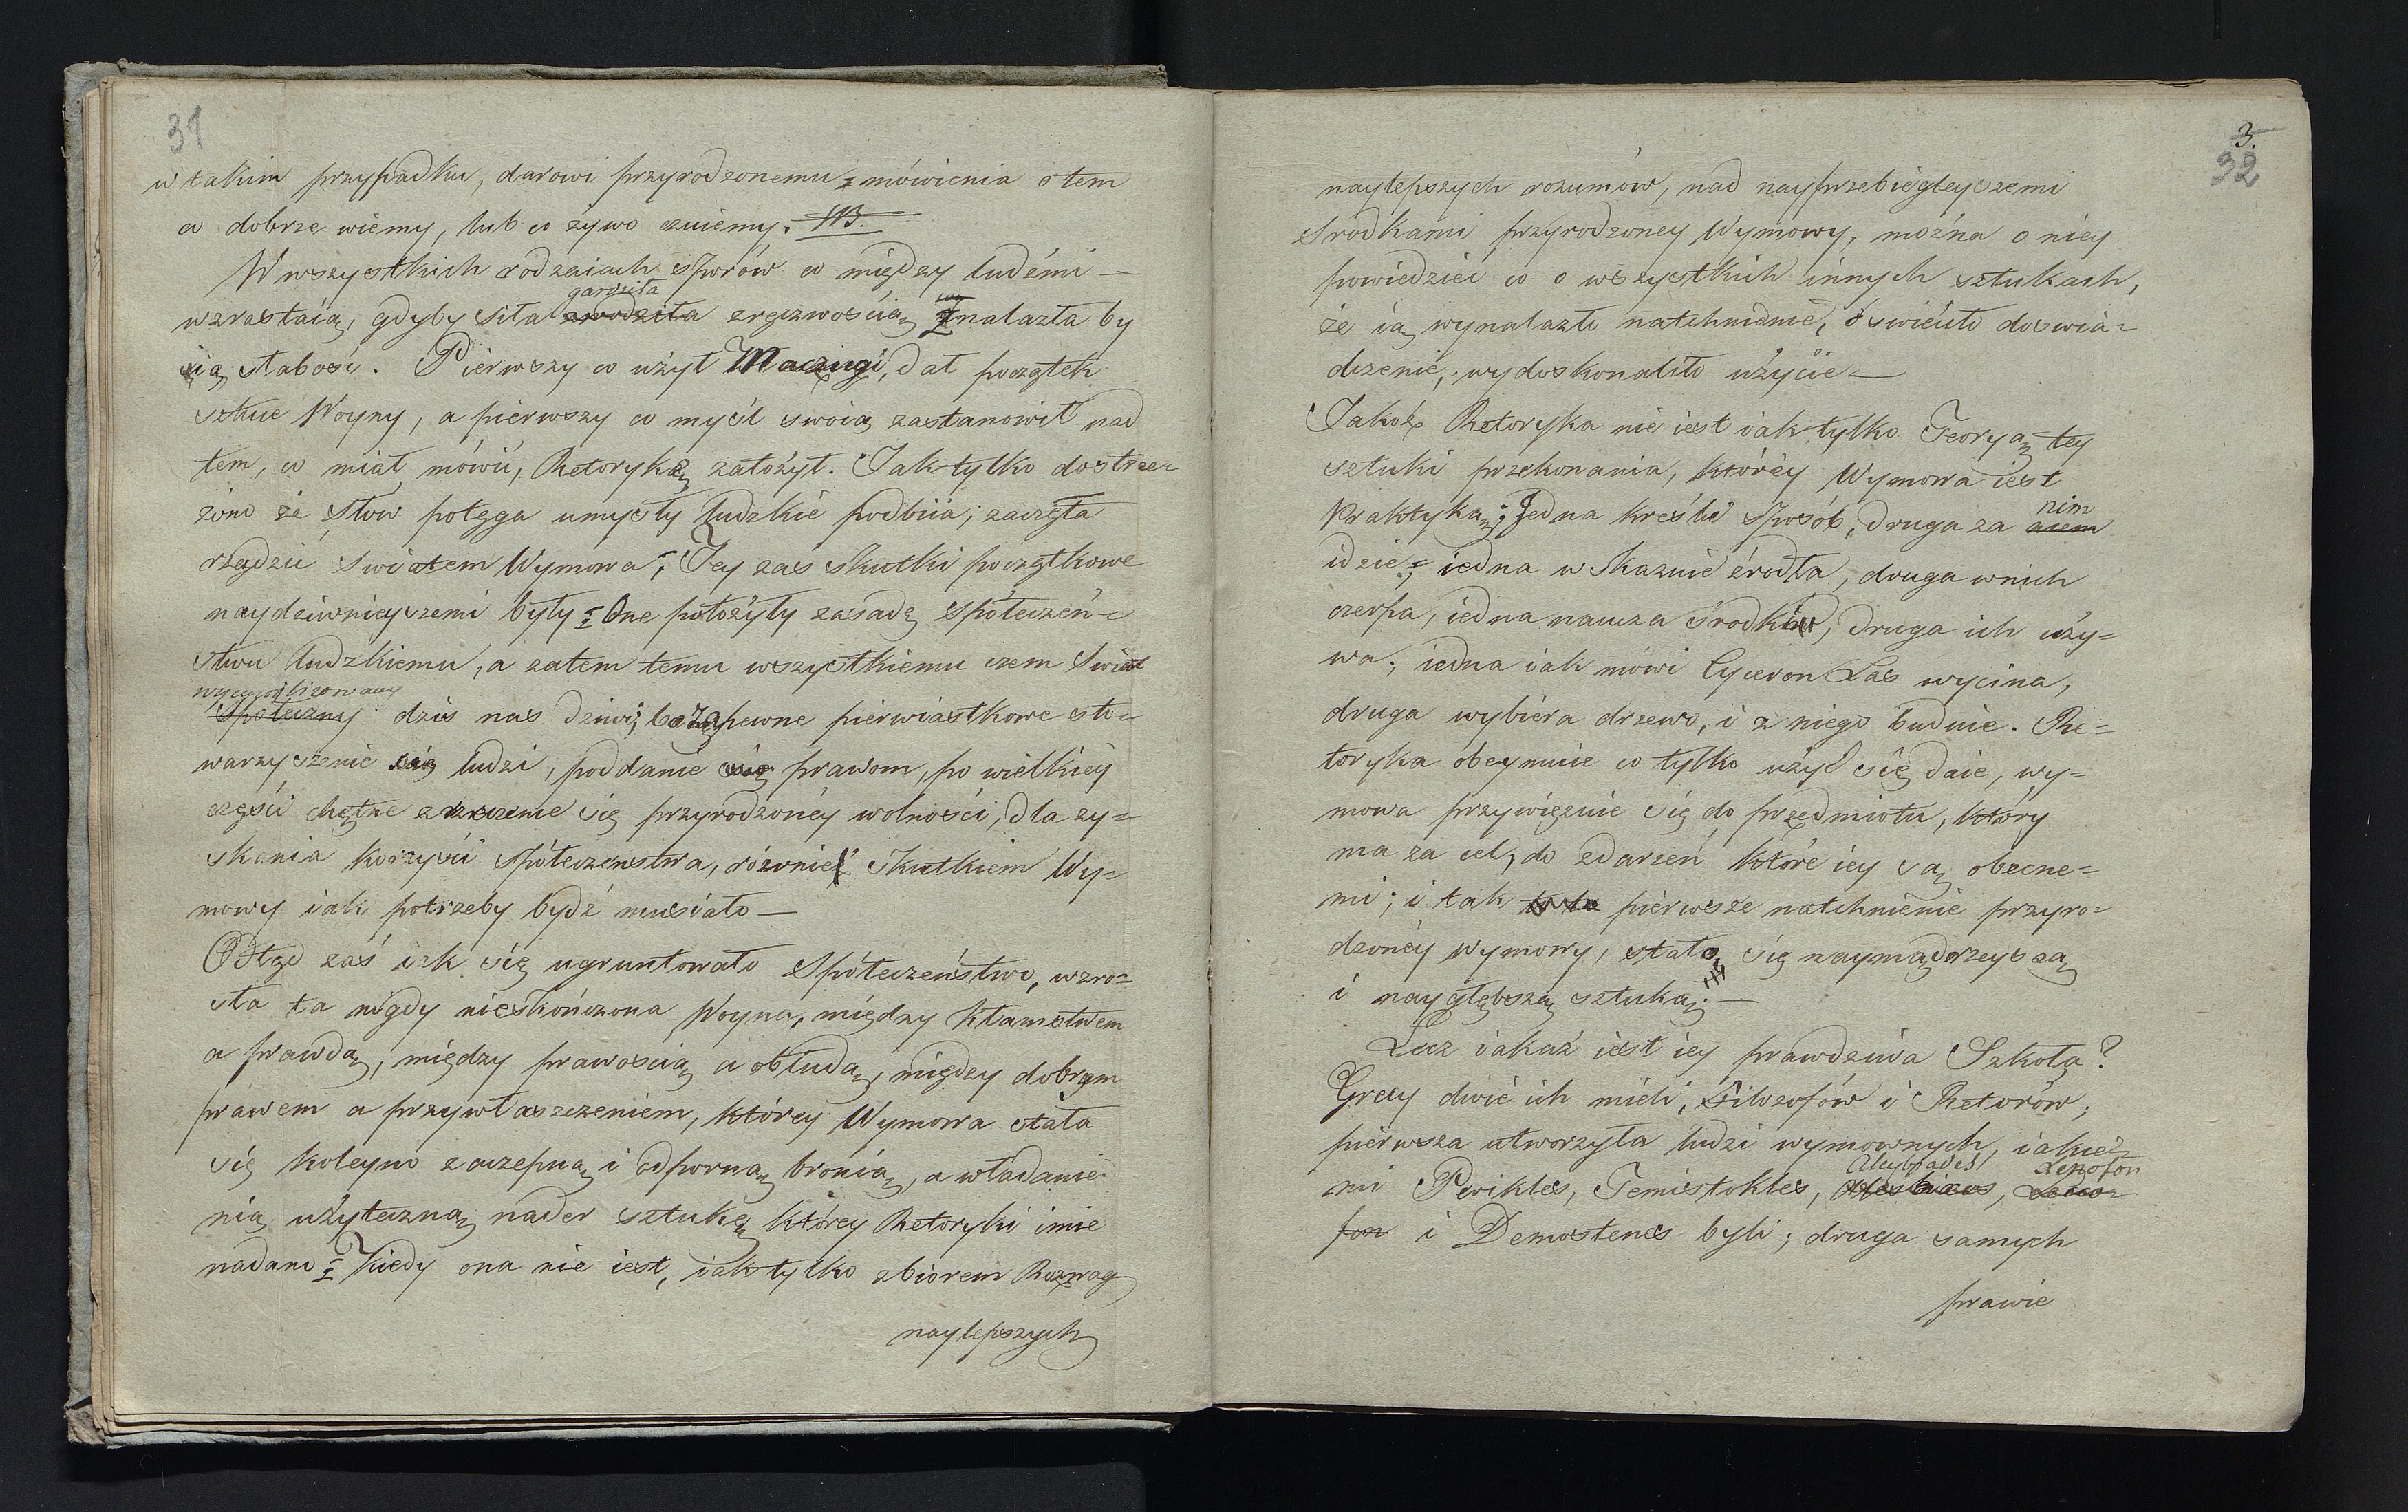 31
w takim przypadku, darowi przyrodzonemu mówienia o tem
co dobrze wiemy, lub co żywo czuiemy. NB.
W wszystkich rodzaiach sporów co między ludźmi —
gardziła
wzrastaią, gdyby siła zręcznością znalazła by
się słabość. Pierwszy co użył Maczugi, dał początek
sztuce Woyny, a pierwszy co myśl swoią zastanowił nad
tem, co miał mówić, Retorykę założył. Jak tylko dostrze-
żono że słow potęga umysły ludzkie podbiia; zaczęła
rządzić swiatem Wymowa; Jey zaś skutki początkowe
naydziwnieyszemi były: One położyły zasadę społeczeń-
stwu ludzkiemu, a zatem temu wszystkiemu czem swiat
wycywilizowany
Społeczny dziś nas dziwi; bo zapewne pierwiastkowe sto-
warzyszenie się ludzi, poddanie się prawom, po wielkiey
części chętne zrzeczenie się przyrodzoney wolności, dla zy-
skania korzyści społeczenstwa, równie skutkiem Wy-
mowy iak potrzeby bydź musiało —
Odtąd zaś iak się ugruntowało Społeczeństwo, wzro-
sła ta nigdy nieskończona Woyna, między kłamstwem
a prawdą, między prawością a obłudą, między dobrym
prawem a przywłaszczeniem, którey Wymowa stała
się koleyno zaczepną i odporną bronią, a władanie
nią użyteczną nader sztuką którey Retoryki imie
nadano: Kiedy ona nie iest, iak tylko zbiorem Rozwag
naylepszych
3.
32
naylepszych rozumów, nad nayprzebiegleyszemi
srodkami przyrodzoney Wymowy, można o niey
powiedzieć co o wszystkich innych sztukach,
że ią wynalazło natchnienie, oświeciło doswia-
dczenie, wydoskonaliło użycie —
Jakoż Retoryka nie iest iak tylko Teoryą tey
sztuki przekonania, którey Wymowa iest
nim
Praktyką; Jedna kreśli sposób, druga za
idzie; iedna wskazuie źrodła, druga w nich
czerpa, iedna naucza środków, druga ich uży-
wa; iedna iak mówi Cyceron Las wycina,
druga wybiera drzewo, i z niego buduie. Re-
toryka obeymuie co tylko użyć się daie, wy-
mowa przywięzuie się do przedmiotu, który
ma za cel, do zdarzeń które iey są obecne-
mi; i tak pierwsze natchnienie przyro-
dzoney wymowy, stało się naymądrzeyszą
i naygłębszą sztuką. —
Lecz iakaż iest iey prawdziwa Szkoła?
Grecy dwie ich mieli, Filozofów i Retorów;
pierwsza utworzyła ludzi wymownych, iakie-
Alcybiades Xenofon
mi Perikles, Temistokles,
fon i Demostenes byli; druga samych
prawie